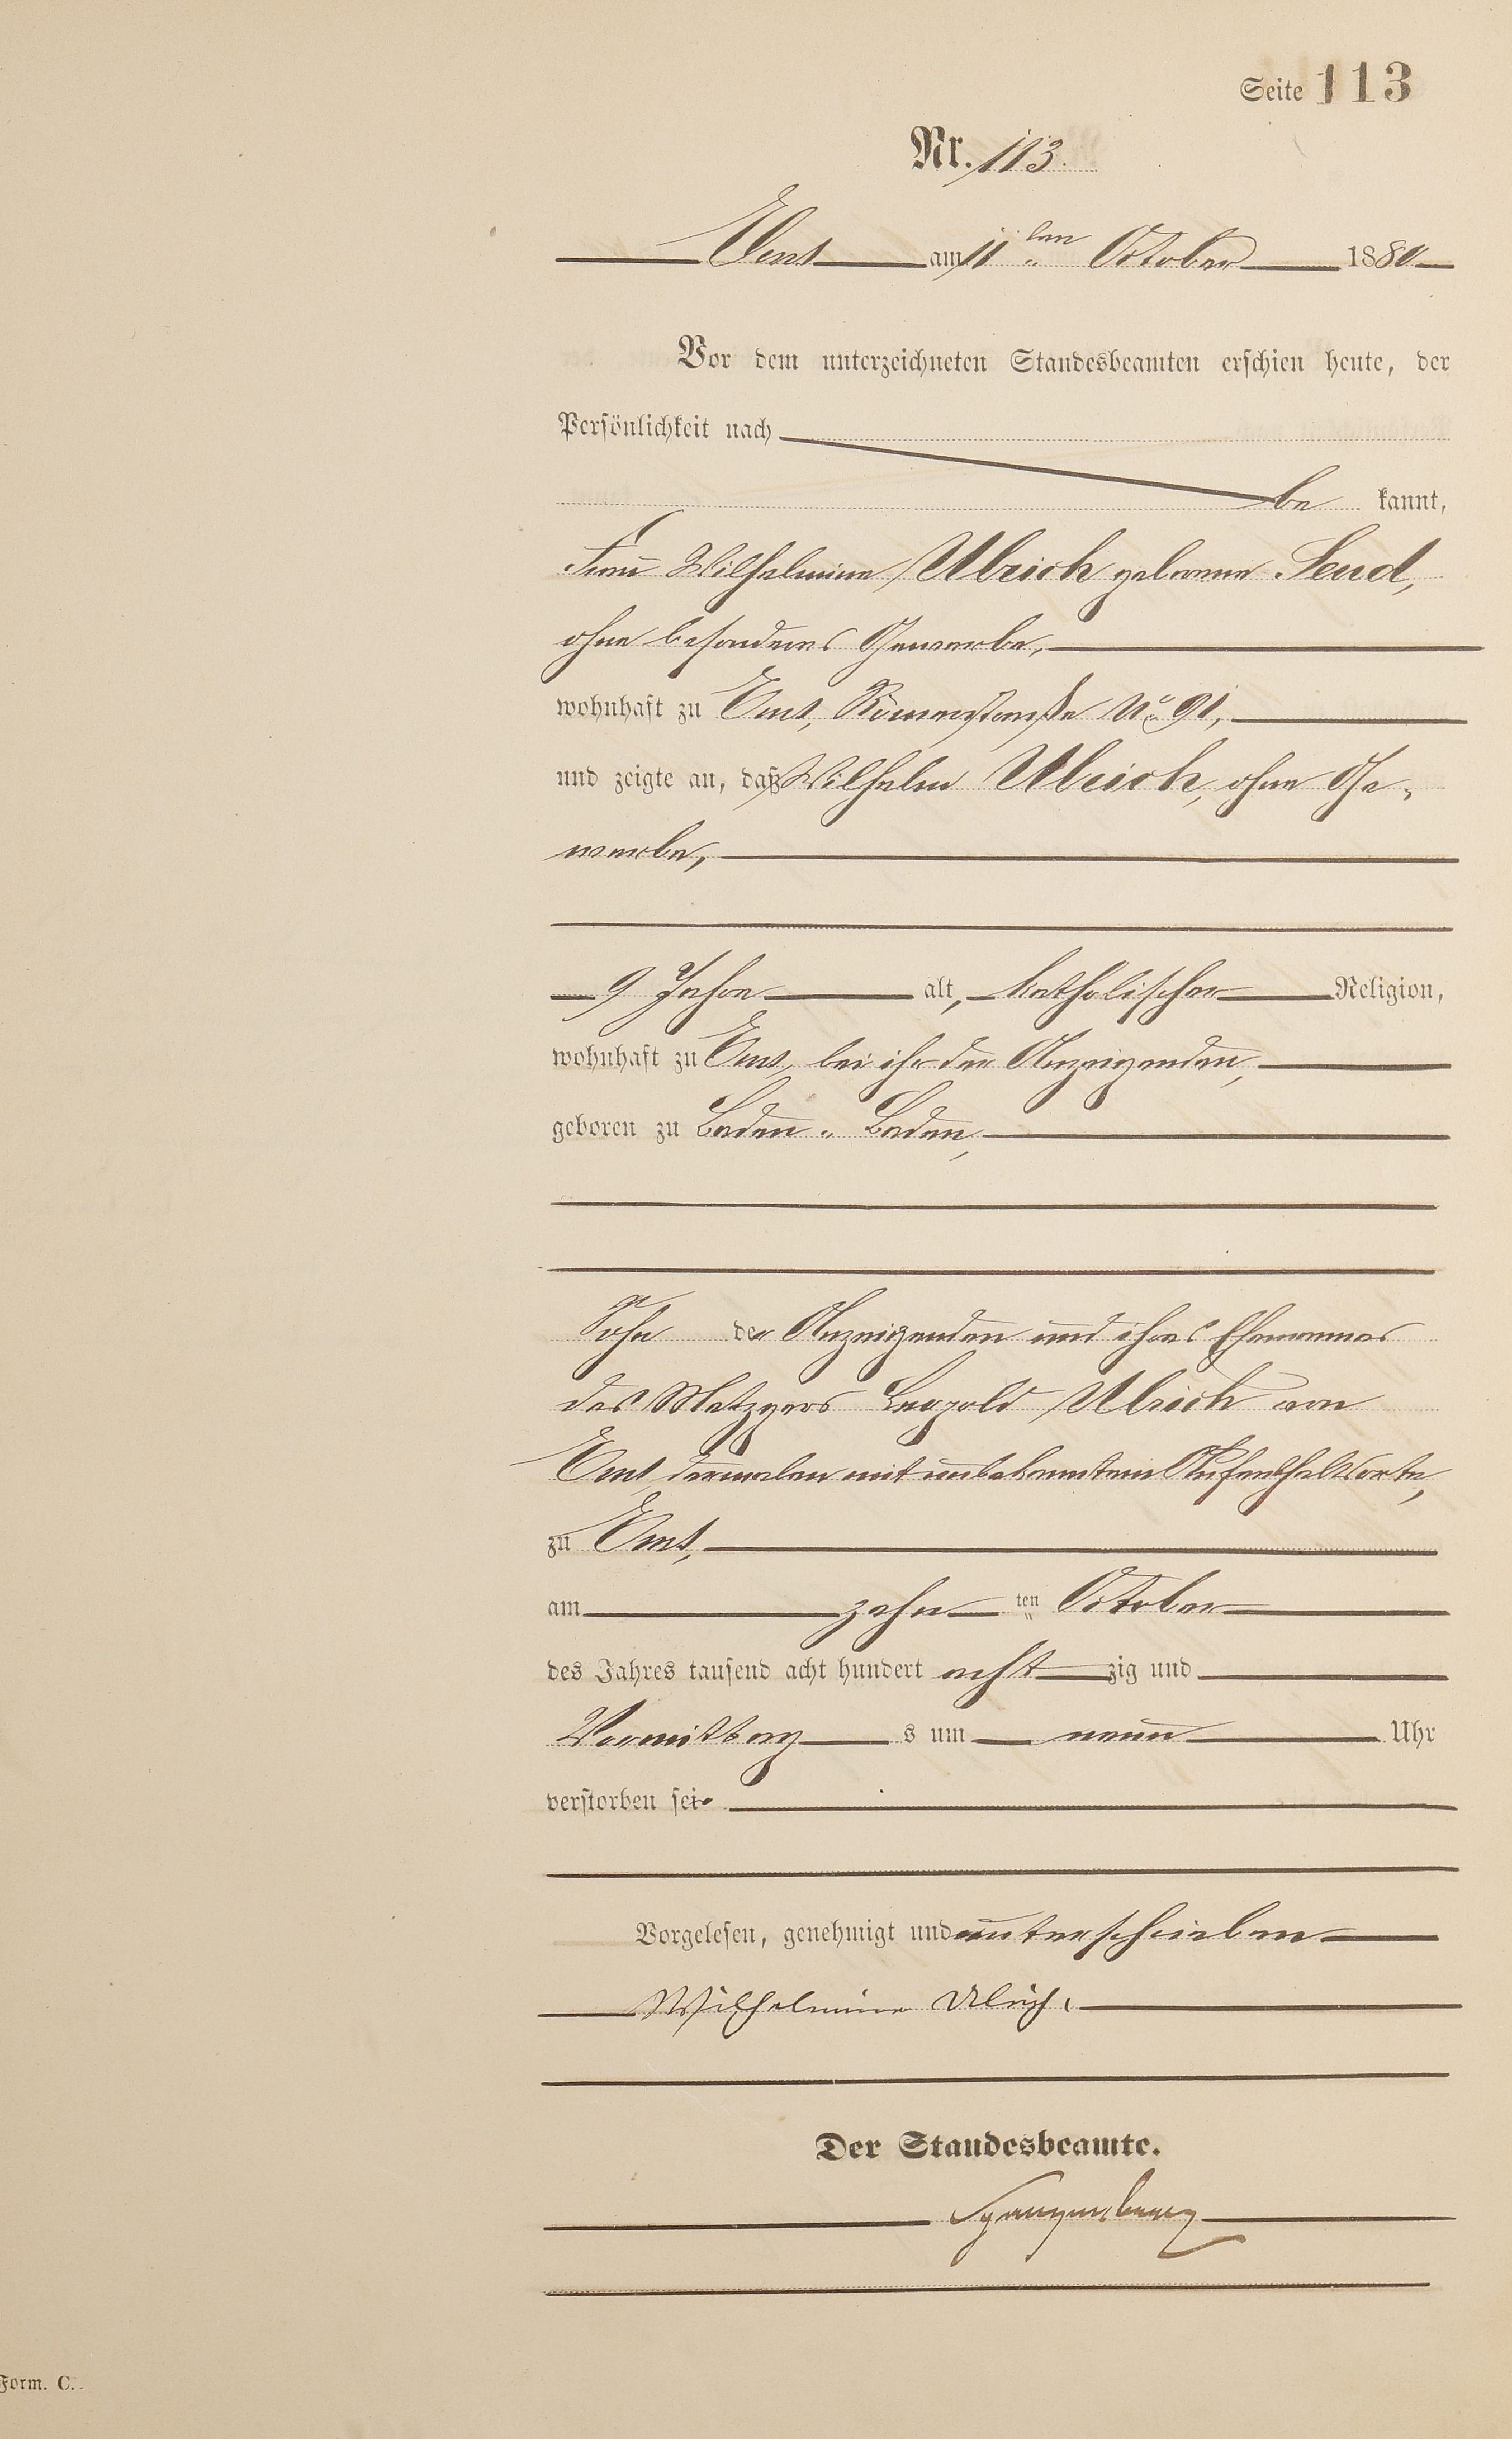 Seite 113
Nr. 113.
Ems am 11ten October 1880
Vor dem unterzeichneten Standesbeamten erschien heute, der
Persönlichkeit nach
be kannt,
Frau Wilhelmine Ulrich geborene Seud,
ohne besonderes Gewerbe,
wohnhaft zu Ems, Römerstraße No 91,
und zeigte an, daß Wilhelm Ulrich, ohne Ge-
werbe,
9 Jahre alt, katholischer Religion,
wohnhaft zu Ems, bei ihr der Anzeigenden,
geboren zu Baden-Baden,
Sohn der Anzeigenden und ihres Ehemannes
des Metzgers Leopold Ulrich von
Ems, dermalen mit unbekanntem Aufenthaltsorte,
zu Ems,
am zehn ten October
des Jahres tausend acht hundert acht zig und
Vormittag s um neun Uhr
verstorben sei
Vorgelesen, genehmigt und unterschrieben
Wilhelmine Ulrich.
Der Standesbeamte.
Spangenberg
Form. C.